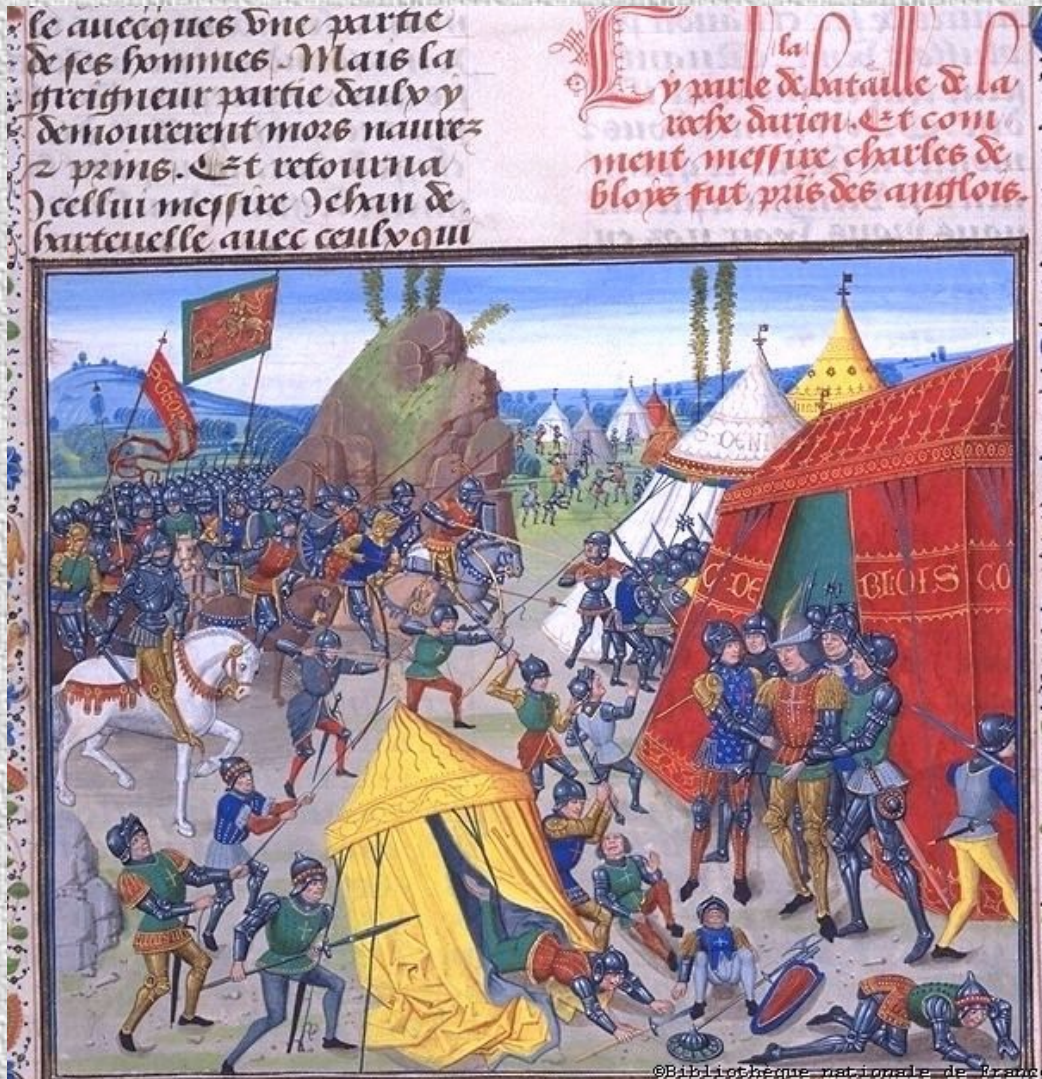 le auecques vne partie
de ses hommes. Mais la
greigneur partie deulx y
demourerent mors naurez
2 prins. Et retourna
Jcellui messire Jehan de
harteuelle auec ceulx qui
la
Cy parle de bataille de la
roche darien. Et com
ment messire charles de
bloys fut pris des anglois.
S GEOR
S DENI
C DE BLOIS CO
©Bibliothèque nationale de France